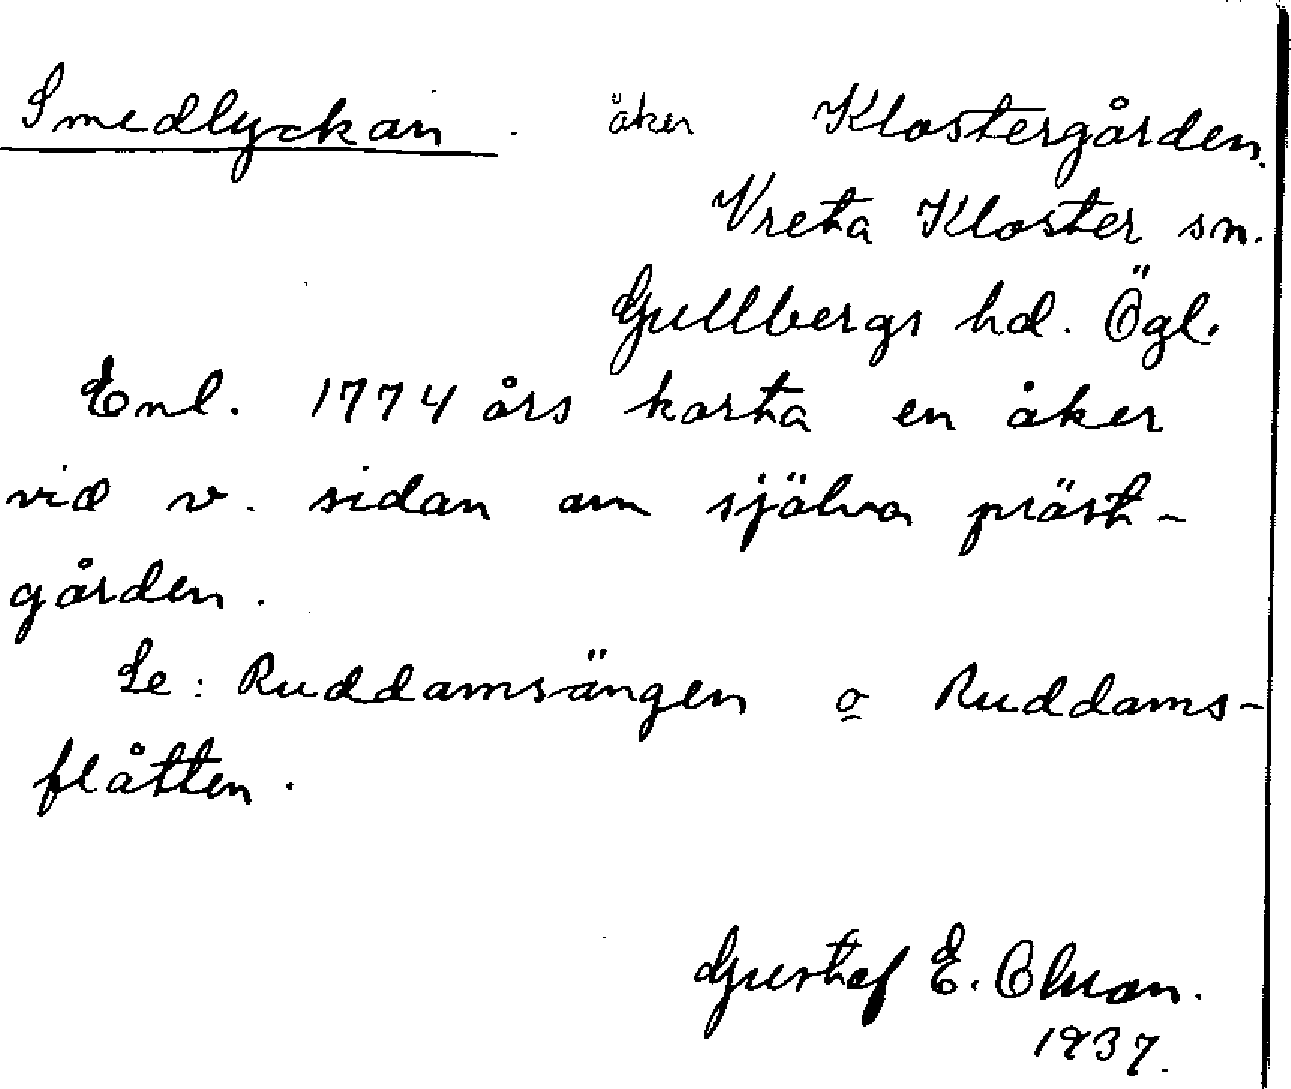 Smedlyckan. åker Klostergården.
Vreta Kloster sn.
Gullbergs hd. Ögl.
Enl. 1774 års karta en åker
vid v. sidan om själva präst-
gården.
Se: Ruddamsängen o Ruddams-
flåtten.
Gustaf E.
1937.